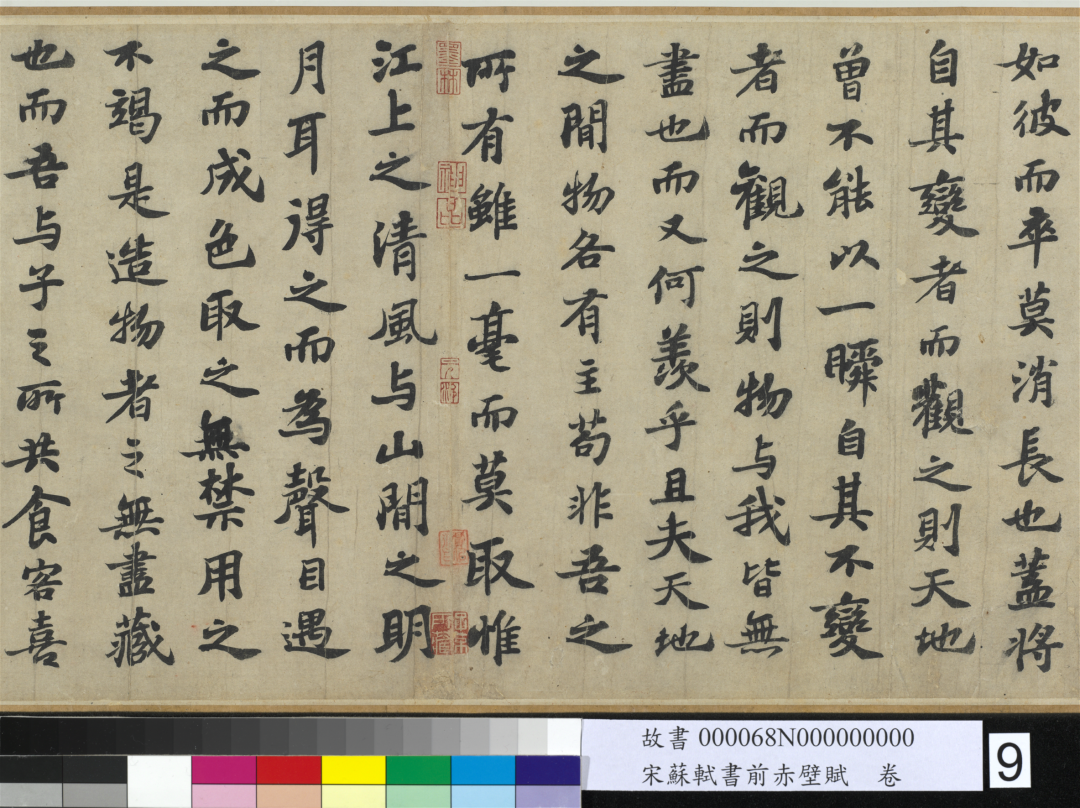 如彼而卒莫消長也蓋將
自其變者而觀之則天地
曾不能以一瞬自其不變
者而觀之則物与我皆無
盡也而又何羨乎且夫天地
之間物各有主苟非吾之
所有雖一毫而莫取惟
江上之清風与山間之明
月耳得之而為聲目遇
之而成色取之無禁用之
不竭是造物者之無盡藏
也而吾与子之所共食客喜
故書 000068N000000000
宋蘇軾書前赤壁賦 卷
9